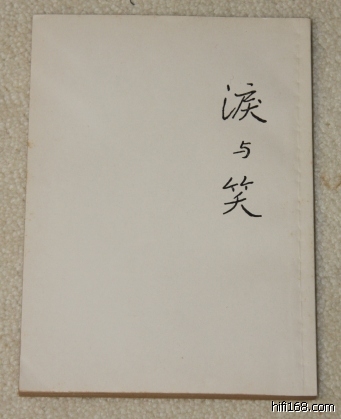 淚
与
笑
hifi168.com